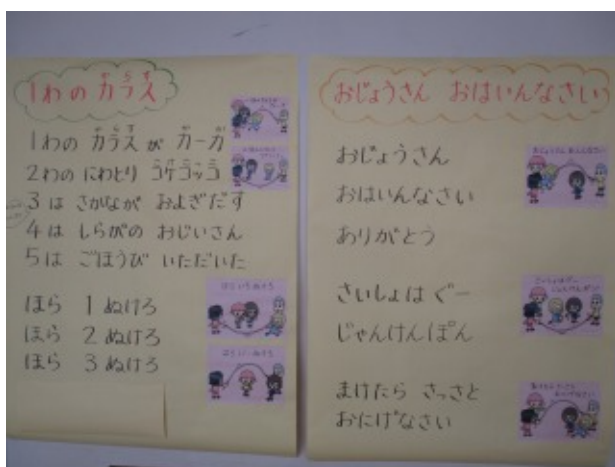 1わの カラス
1わの カラスが カーカ
2わの にわとり コケコッコ
3は さかなが およぎだす
4は しらがの おじいさん
5は ごほうび いただいた
ほら 1 ぬけろ
ほら 2 ぬけろ
ほら 3 ぬけろ
おじょうさん おはいんなさい
おじょうさん
おはいんなさい
ありがとう
さいしょは ぐー
じゃんけんぽん
まけたら さっさと
おにげなさい